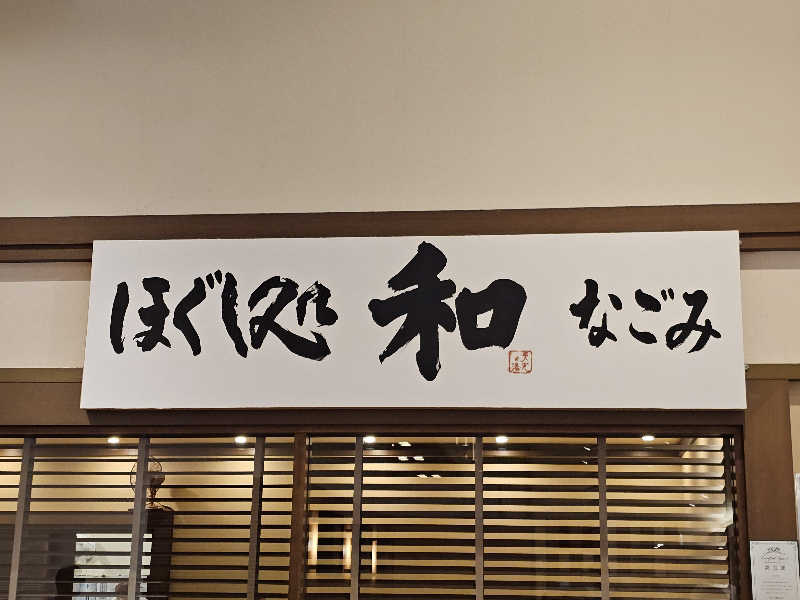 ほぐし処 和 なごみ